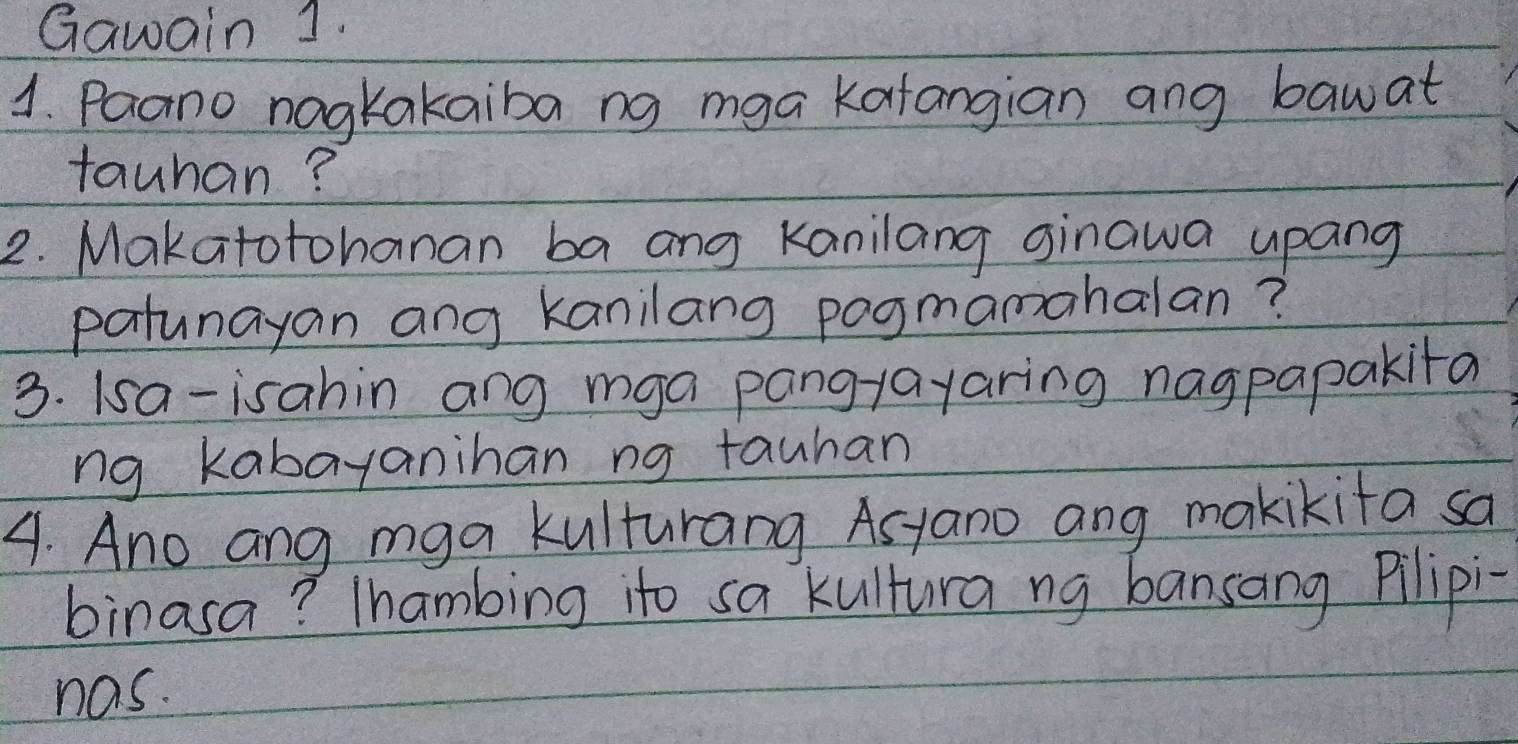 Gawain 1.
1. Paano nagkakaiba ng mga katangian ang bawat
tauhan?
2. Makatotohanan ba ang kanilang ginawa upang
patunayan ang kanilang pagmamahalan?
3. Isa-isahin ang mga pangyayaring nagpapakita
ng kabayanihan ng tauhan
4. Ano ang mga kulturang Asyano ang makikita sa
binasa? Ihambing ito sa kultura ng bansang Pilipi-
nas.